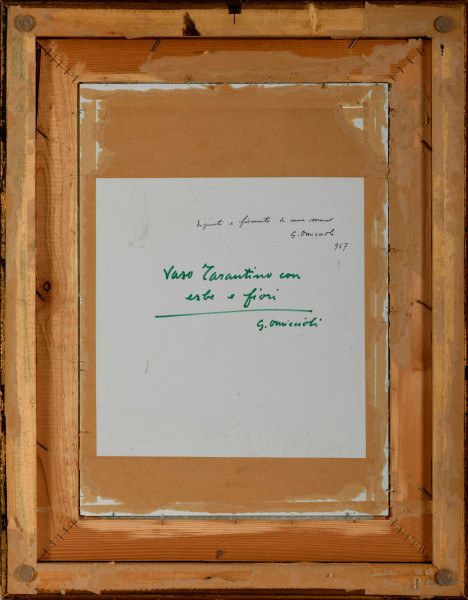 Dipinto e firmato di mia mano
G. Omiccioli
967
Vaso Tarantino con
erbe e fiori
G. Omiccioli